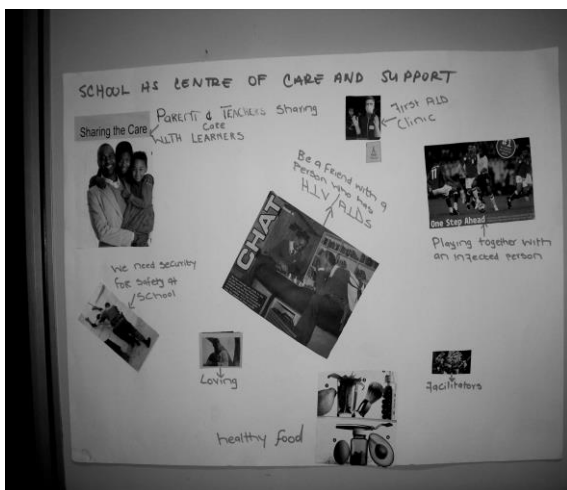 SCHOOL AS CENTRE OF CARE AND SUPPORT
Sharing the Care
PARENTS & TEACHERS Sharing
Care
WITH LEARNERS
First AID
Clinic
Be a Friend with a
Person who has
HIV/AIDS
CHAT
One Step Ahead
Playing together with
an infected person
We need security
for safety at
School
Loving
Facilitators
healthy food